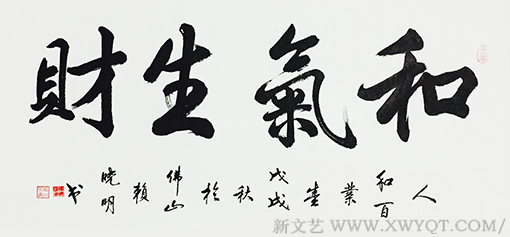 和氣生財
人和百業興戊戌秋於佛山賴曉明书
新文艺 WWW.XWYQT.COM/